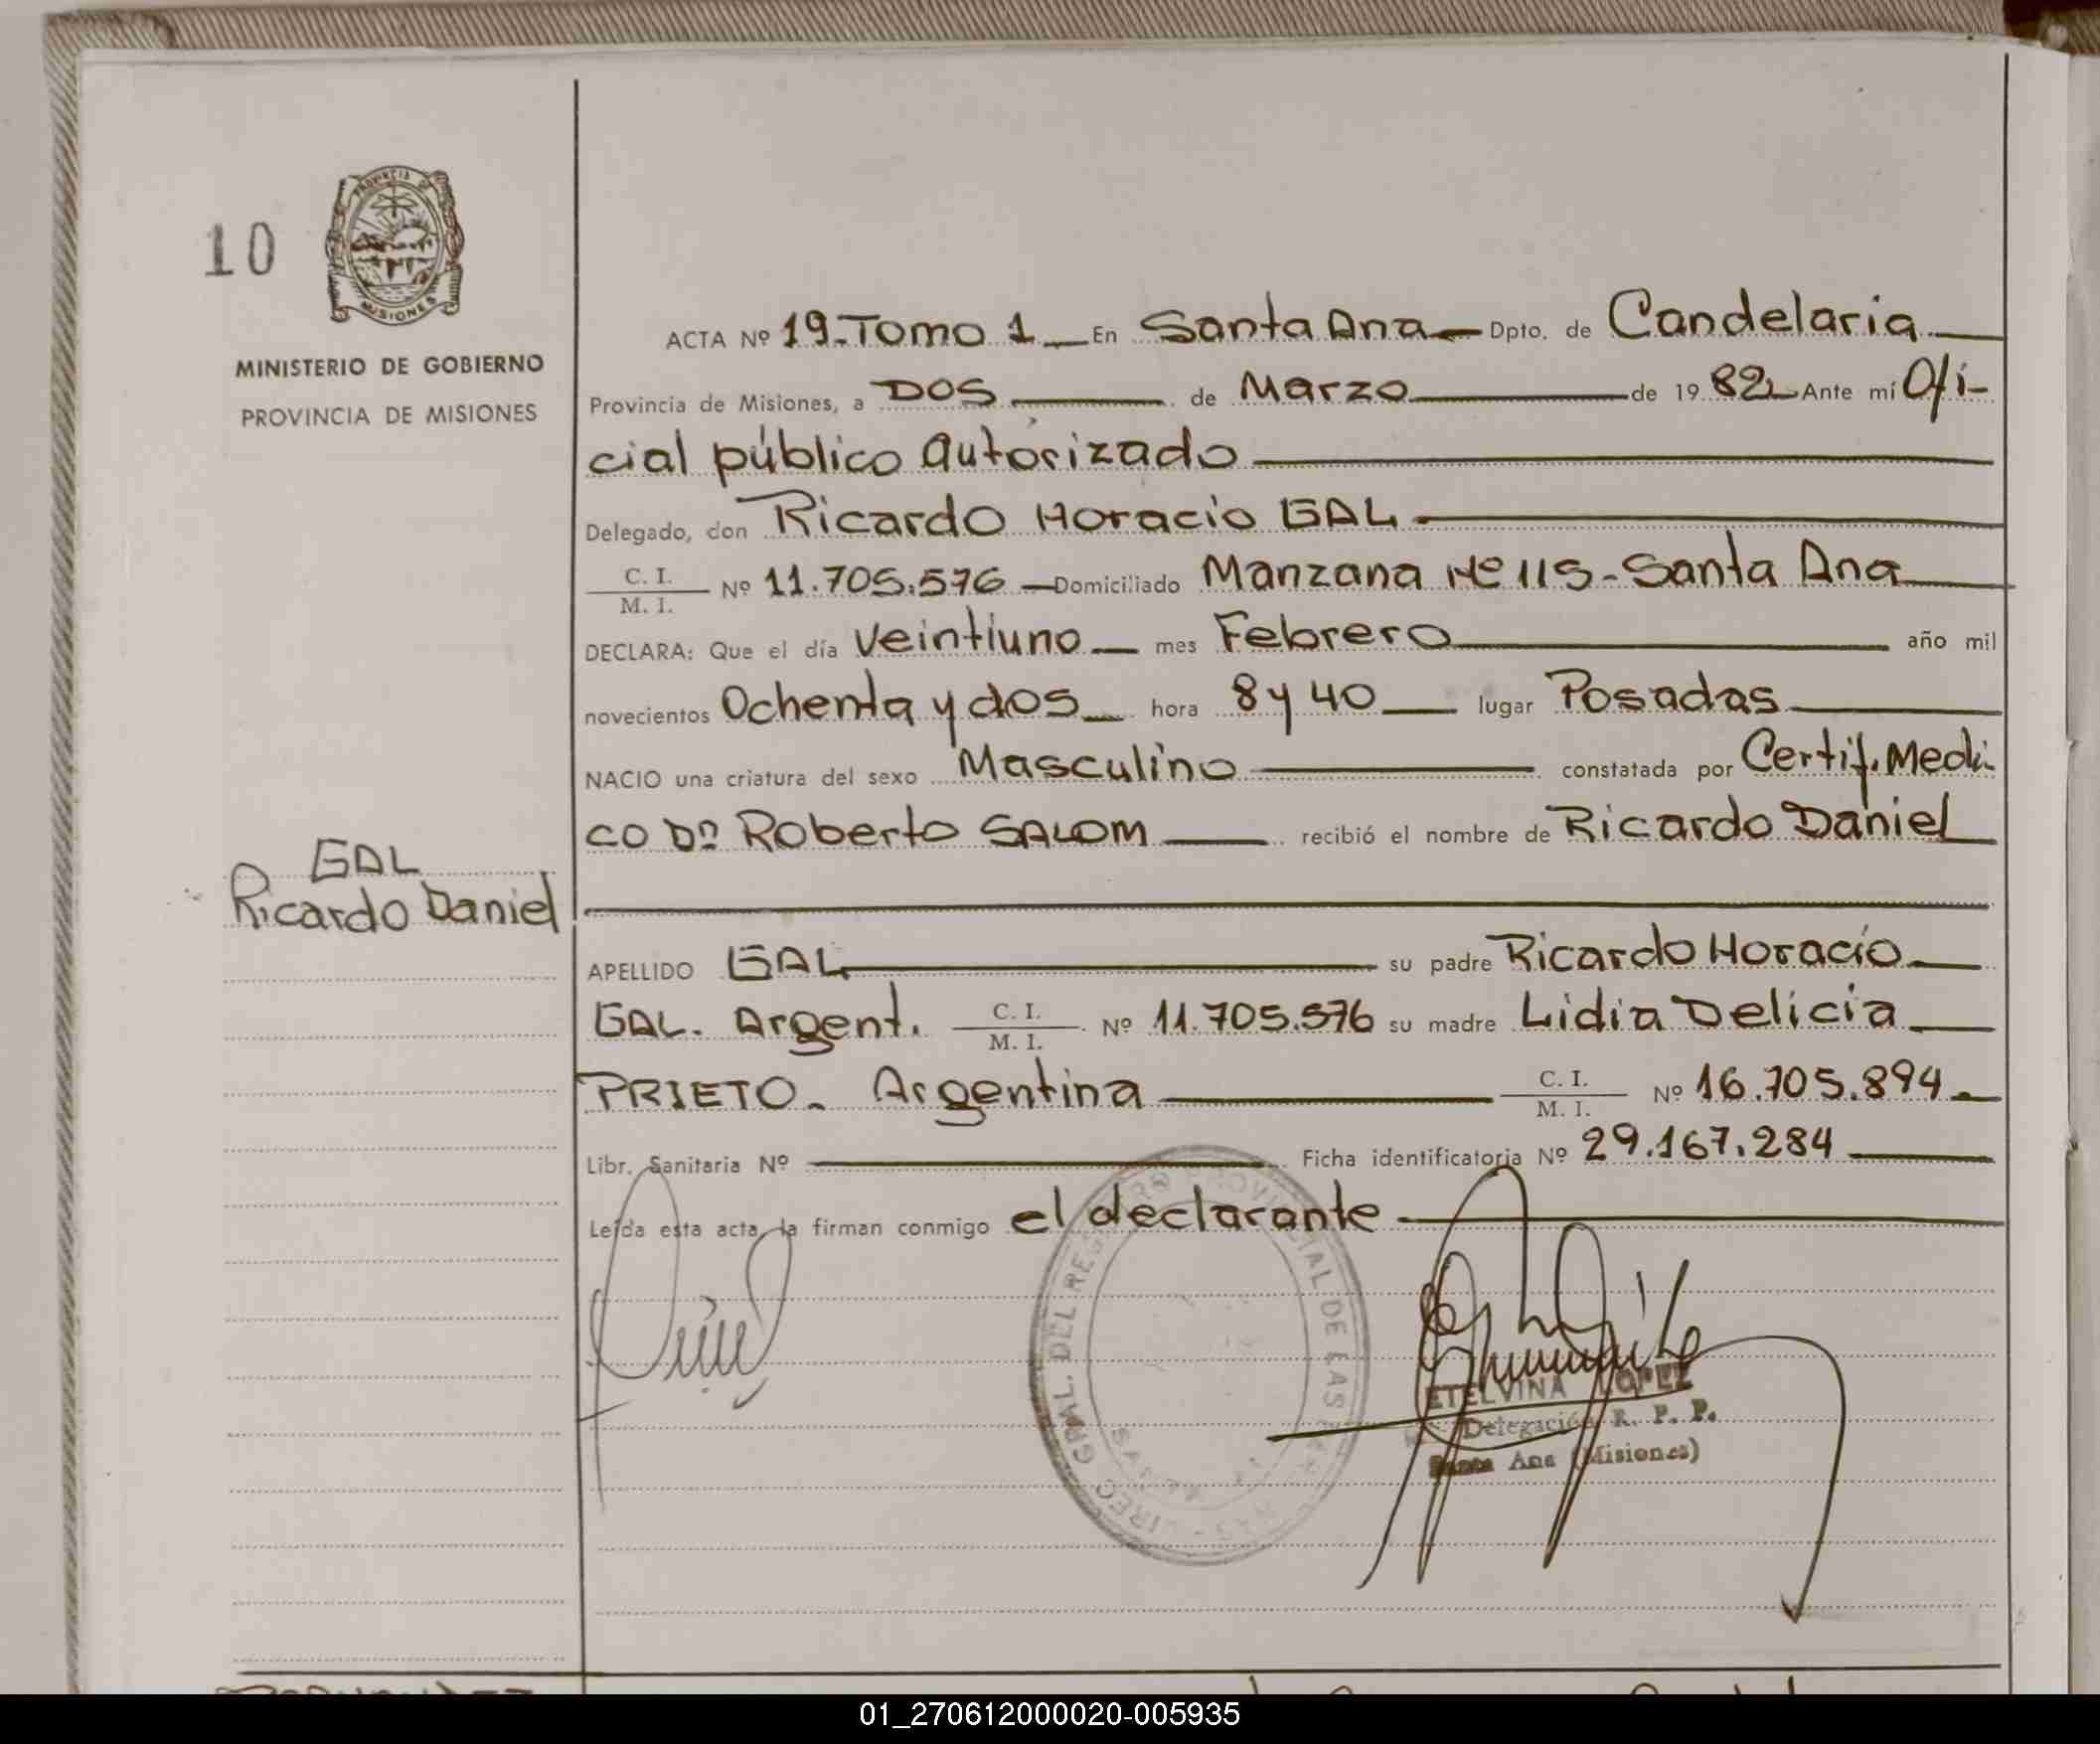 10
PROVINCIA DE
MISIONES
MINISTERIO DE GOBIERNO
PROVINCIA DE MISIONES
GAL
Ricardo Daniel
ACTA Nº 19-Tomo 1 En Santa Ana Dpto. de Candelaria
Provincia de Misiones, a DOS de Marzo de 1982 Ante mí Ofi-
cial público autorizado
Delegado, don Ricardo Horacio GAL
C. I.
M. I. Nº 11.705.576 Domiciliado Manzana Nº 115-Santa Ana
DECLARA: Que el día veintiuno mes Febrero año mil
novecientos Ochenta y dos hora 8 y 40 lugar Posadas
NACIO una criatura del sexo Masculino constatada por Certif. Medi
co Dº Roberto SALOM recibió el nombre de Ricardo Daniel
APELLIDO GAL su padre Ricardo Horacio
GAL. Argent. C. I.
M. I. Nº 11.705.576 su madre Lidia Delicia
PRIETO. Argentina C. I.
M. I. Nº 16.705.894
Libr. Sanitaria Nº Ficha identificatoria Nº 29.167.284
Leída esta acta, la firman conmigo el declarante
DIREC GRAL. DEL REGISTRO PROVINCIAL DE LAS
ETELVINA LOPEZ
Delegación R. P. P.
Santa Ana (Misiones)
01_270612000020-005935